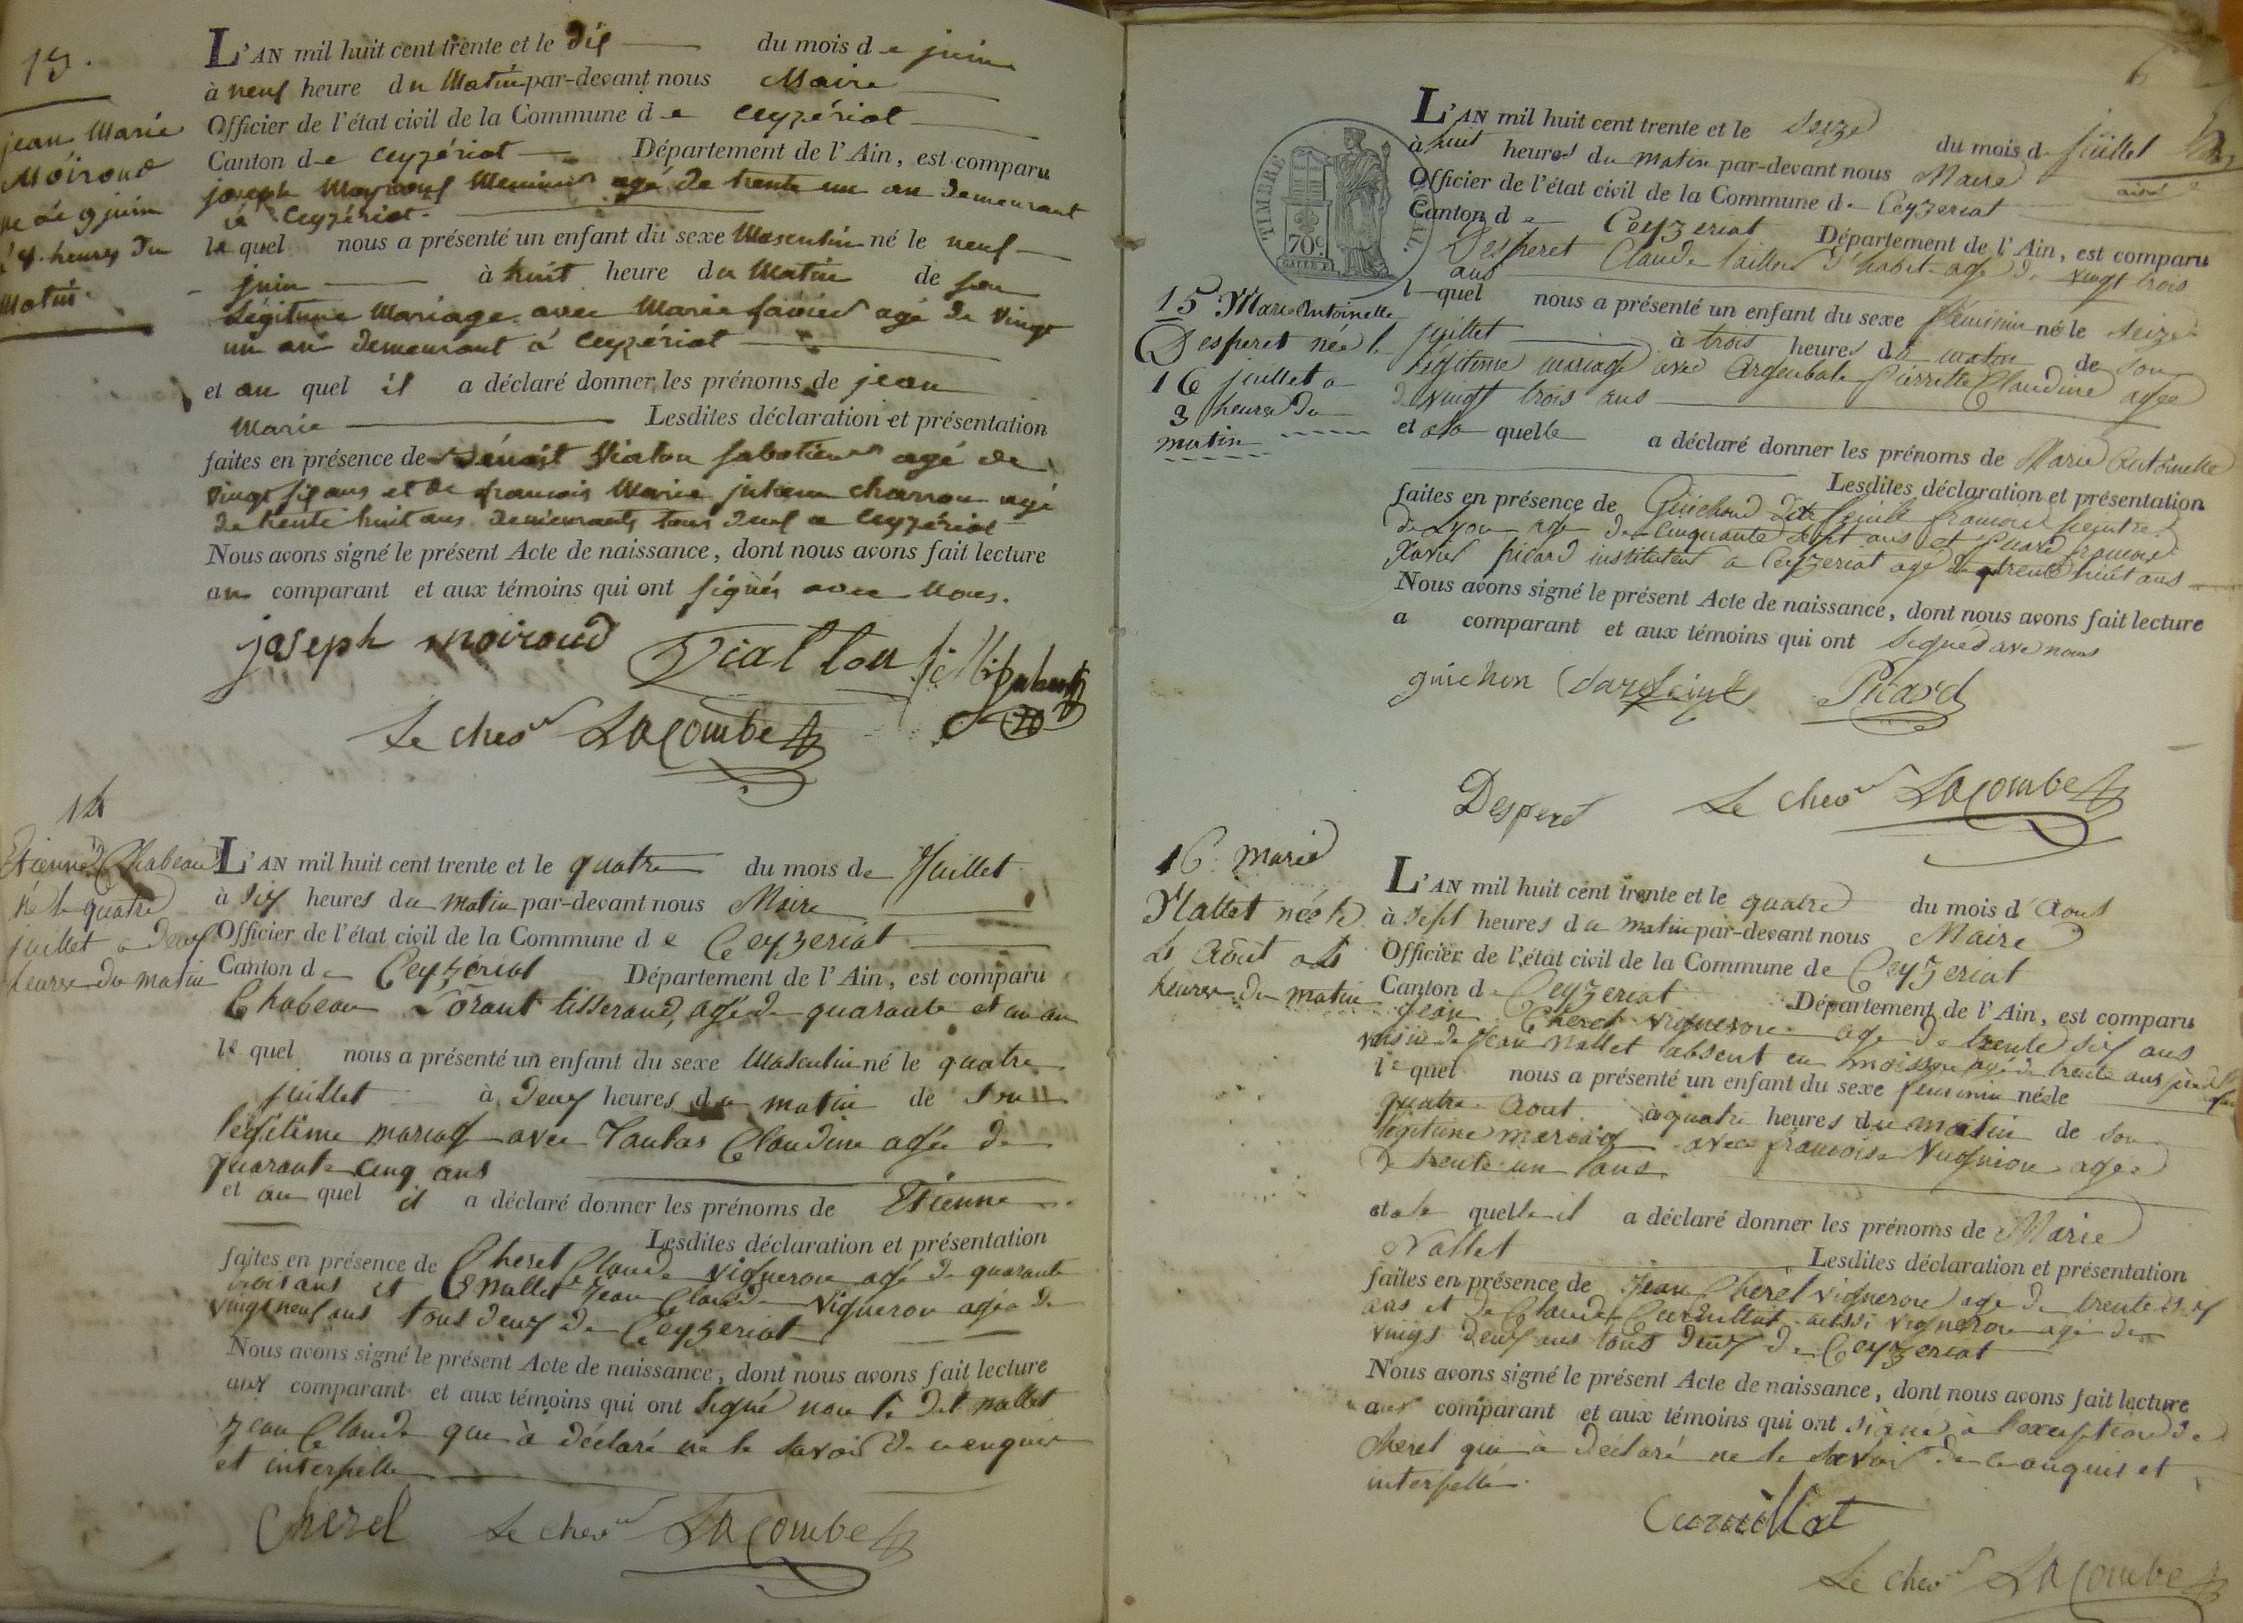 13.
jean Marie
Moiroud
né le 9 juin
à 8 heures du
Matin
L'AN mil huit cent trente et le dix du mois de juin
à neuf heure du Matin par-devant nous Maire
Officier de l'état civil de la Commune de Ceyzériat
Canton de Ceyzériat Département de l'Ain, est comparu
joseph Moyroud Menuisier agé de trente un an demeurant
à Ceyzériat
lequel nous a présenté un enfant du sexe Masculin né le neuf
juin à huit heure du Matin de son
Légitime Mariage avec Marie favier agé de vingt
un an demeurant à Ceyzériat
et au quel il a déclaré donner les prénoms de jean
Marie Lesdites déclaration et présentation
faites en présence de Bénoit Vialon sabotier agé de
vingt six ans et de francois Marie juhem charron agé
de trente huit ans demeurants tous deux a Ceyzériat
Nous avons signé le présent Acte de naissance, dont nous avons fait lecture
au comparant et aux témoins qui ont signés avec Nous.
joseph moiroud Viallon
Le chev. Lacombe
14
Etienne Chabeau
né le quatre
juillet a deux
heures du matin
L'AN mil huit cent trente et le quatre du mois de Juillet
à dix heures du matin par-devant nous Maire
Officier de l'état civil de la Commune de Ceyzeriat
Canton de Ceyzériat Département de l'Ain, est comparu
Chabeau Lorant tisserand, agé de quarante et un an
le quel nous a présenté un enfant du sexe Masculin né le quatre
juillet à deux heures du matin de son
légitime mariage avec Claudine agée de
quarante cinq ans
et au quel il a déclaré donner les prénoms de Etienne
Lesdites déclaration et présentation
faites en présence de Cherel Claude vigneron agé de quarante
trois ans et Nallet Jean Claude vigneron agé de
vingt neuf ans tous deux de Ceyzeriat
Nous avons signé le présent Acte de naissance, dont nous avons fait lecture
aux comparant et aux témoins qui ont signé non le dit nallet
Jean Claude qui à déclaré ne le savoir de ce enquis
et interpellé
Cherel Le chev. Lacombe
6
TIMBRE ROYAL
70c
L'AN mil huit cent trente et le seize du mois de juillet
à huit heures du matin par-devant nous Maire
Officier de l'état civil de la Commune de Ceyzeriat
Canton de Ceyzeriat Département de l'Ain, est comparu
Desperet Claude tailleur d'habit agé de vingt trois
ans
lequel nous a présenté un enfant du sexe féminin né le seize
juillet à trois heures du matin de son
légitime mariage avec Pierrette Claudine agée
de vingt trois ans
et a la quelle a déclaré donner les prénoms de Marie Antoinette
Lesdites déclaration et présentation
faites en présence de Guichon dit francois peintre
de Lyon agé de cinquante sept ans et
Xavier Picard instituteur a Ceyzeriat agé de trente huit ans
Nous avons signé le présent Acte de naissance, dont nous avons fait lecture
a comparant et aux témoins qui ont signés avec nous
guichon Picard
Desperet Le chev. Lacombe
15 Marie Antoinette
Desperet née le
16 juillet a
3 heures du
matin
16. Marie
Nallet née le
4 Août a 4
heures du matin
L'AN mil huit cent trente et le quatre du mois d'Aout
à sept heures du matin par-devant nous Maire
Officier de l'état civil de la Commune de Ceyzeriat
Canton de Ceyzeriat Département de l'Ain, est comparu
Jean Cherel vigneron agé de trente six ans
voisin de Jean Nallet absent en moisson agé de trente ans
lequel nous a présenté un enfant du sexe feminin née le
quatre Aout à quatre heures du matin de son
légitime mariage avec francoise Vugnion agée
de trente un ans
et a la quelle il a déclaré donner les prénoms de Marie
Nallet Lesdites déclaration et présentation
faites en présence de Jean Cherel vigneron agé de trente six
ans et de Claude Curnillat aussi vigneron agé de
vingt deux ans tous deux de Ceyzeriat
Nous avons signé le présent Acte de naissance, dont nous avons fait lecture
aux comparant et aux témoins qui ont signé à l'exception de
Cherel qui à déclaré ne le savoir de ce enquis et
interpellé.
Curnillat
Le chev. Lacombe